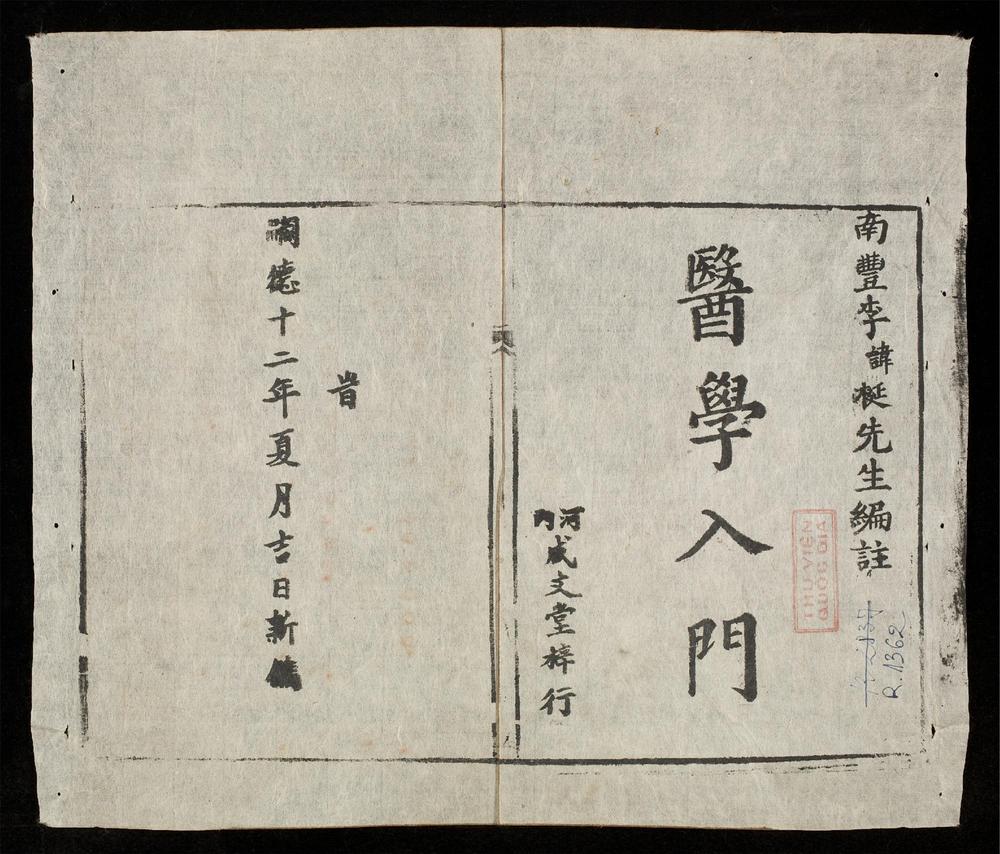 南豐李諱梴先生編註
醫學入門
河內成文堂梓行
旹
嗣德十二年夏月吉日新鐫
THƯ VIỆN
QUỐC GIA
R.1362